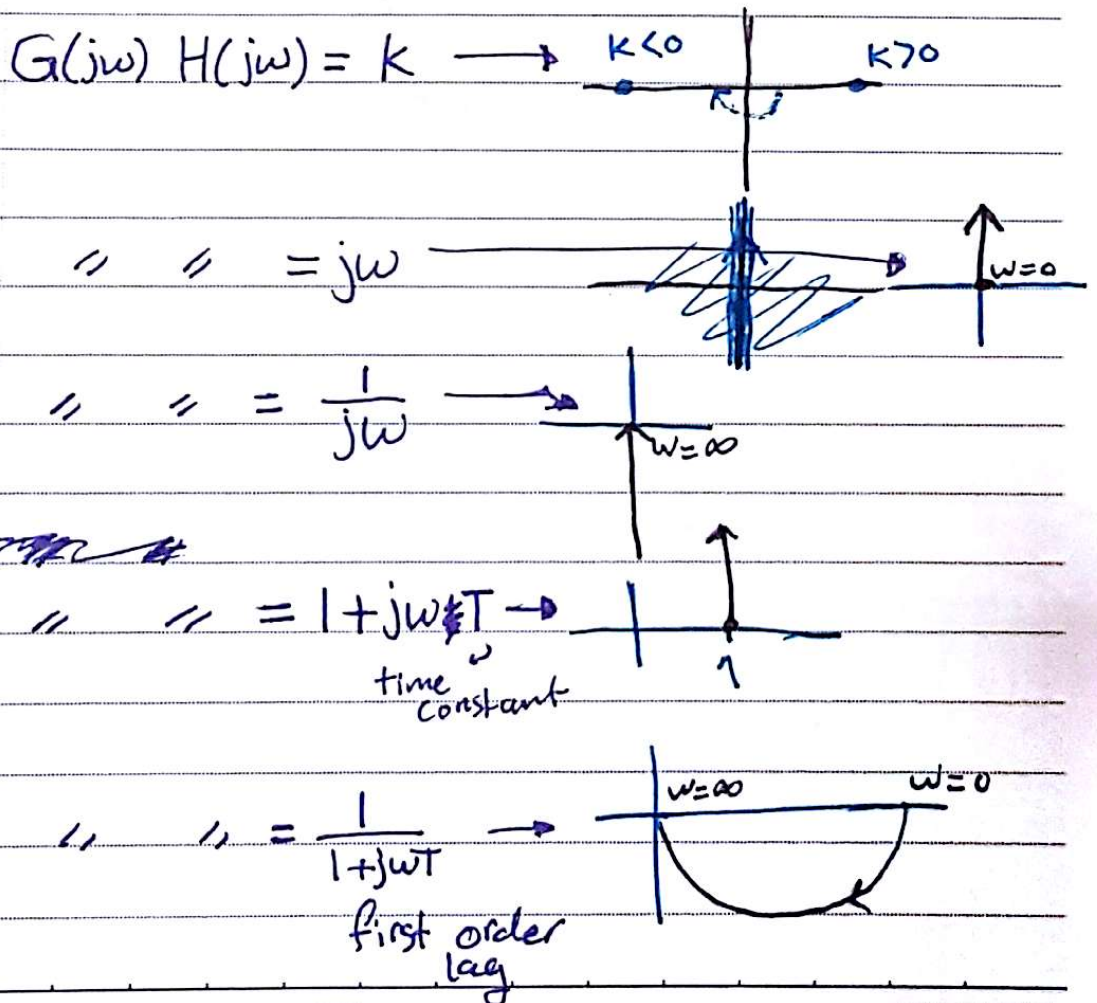 G(jω) H(jω) = k → k<0 k>0
〃 〃 = jω → w=0
〃 〃 = 1/jω → w=∞
〃 〃 = 1+jωT → 1
time constant
〃 〃 = 1/1+jωT → w=∞ w=0
first order
lag